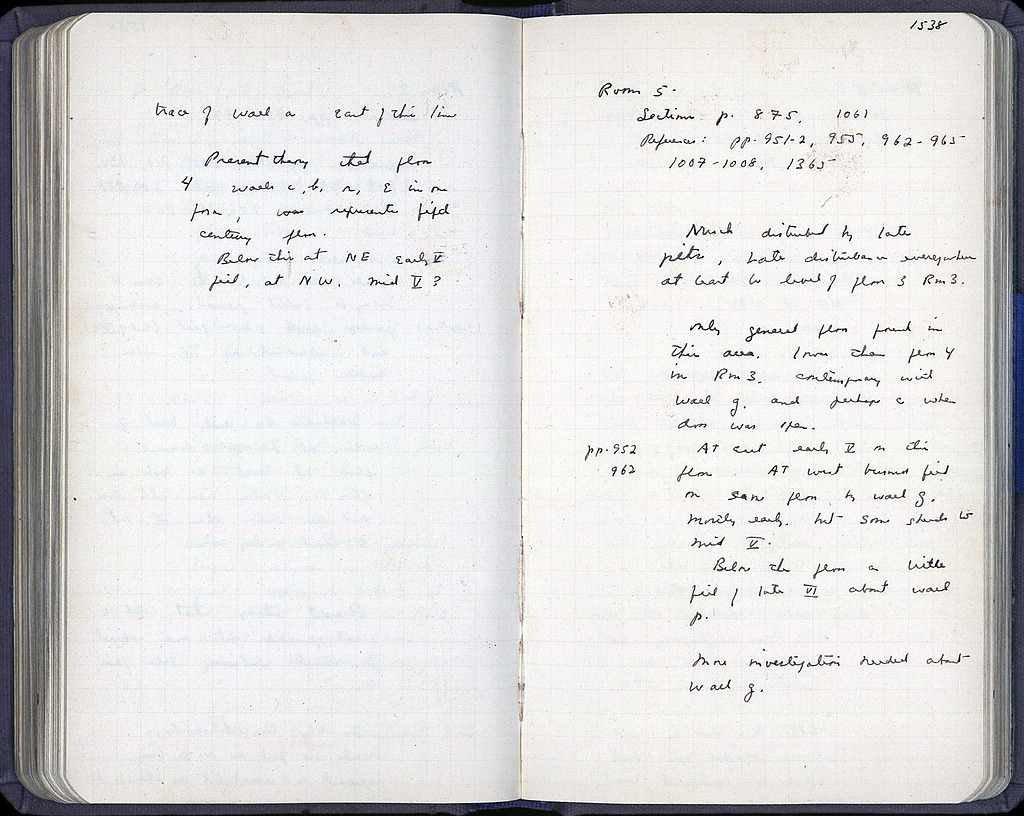 trace of wall a east of this line
Present theory that floor
4 walls c, b, n, E in one
form, was represents fifth
century floor.
Below this at NE early V
fill, at NW. mid V?
1538
Room 5.
Sections p. 875, 1061
References: pp. 951-2, 955, 962-965
1007-1008, 1365
Much disturbed by late
pits, Late disturbance everywhere
at least to level of floor 3 Rm 3.
Only general floor found in
this area. lower than floor 4
in Rm 3. contemporary with
wall g. and perhaps c when
door was open.
pp. 952 At east early V on this
962 floor At west burned fill
on same floor by wall g.
mostly early. but some sherds to
mid V.
Below the floor a little
fill of late VI about wall
p.
More investigation needed about
wall g.